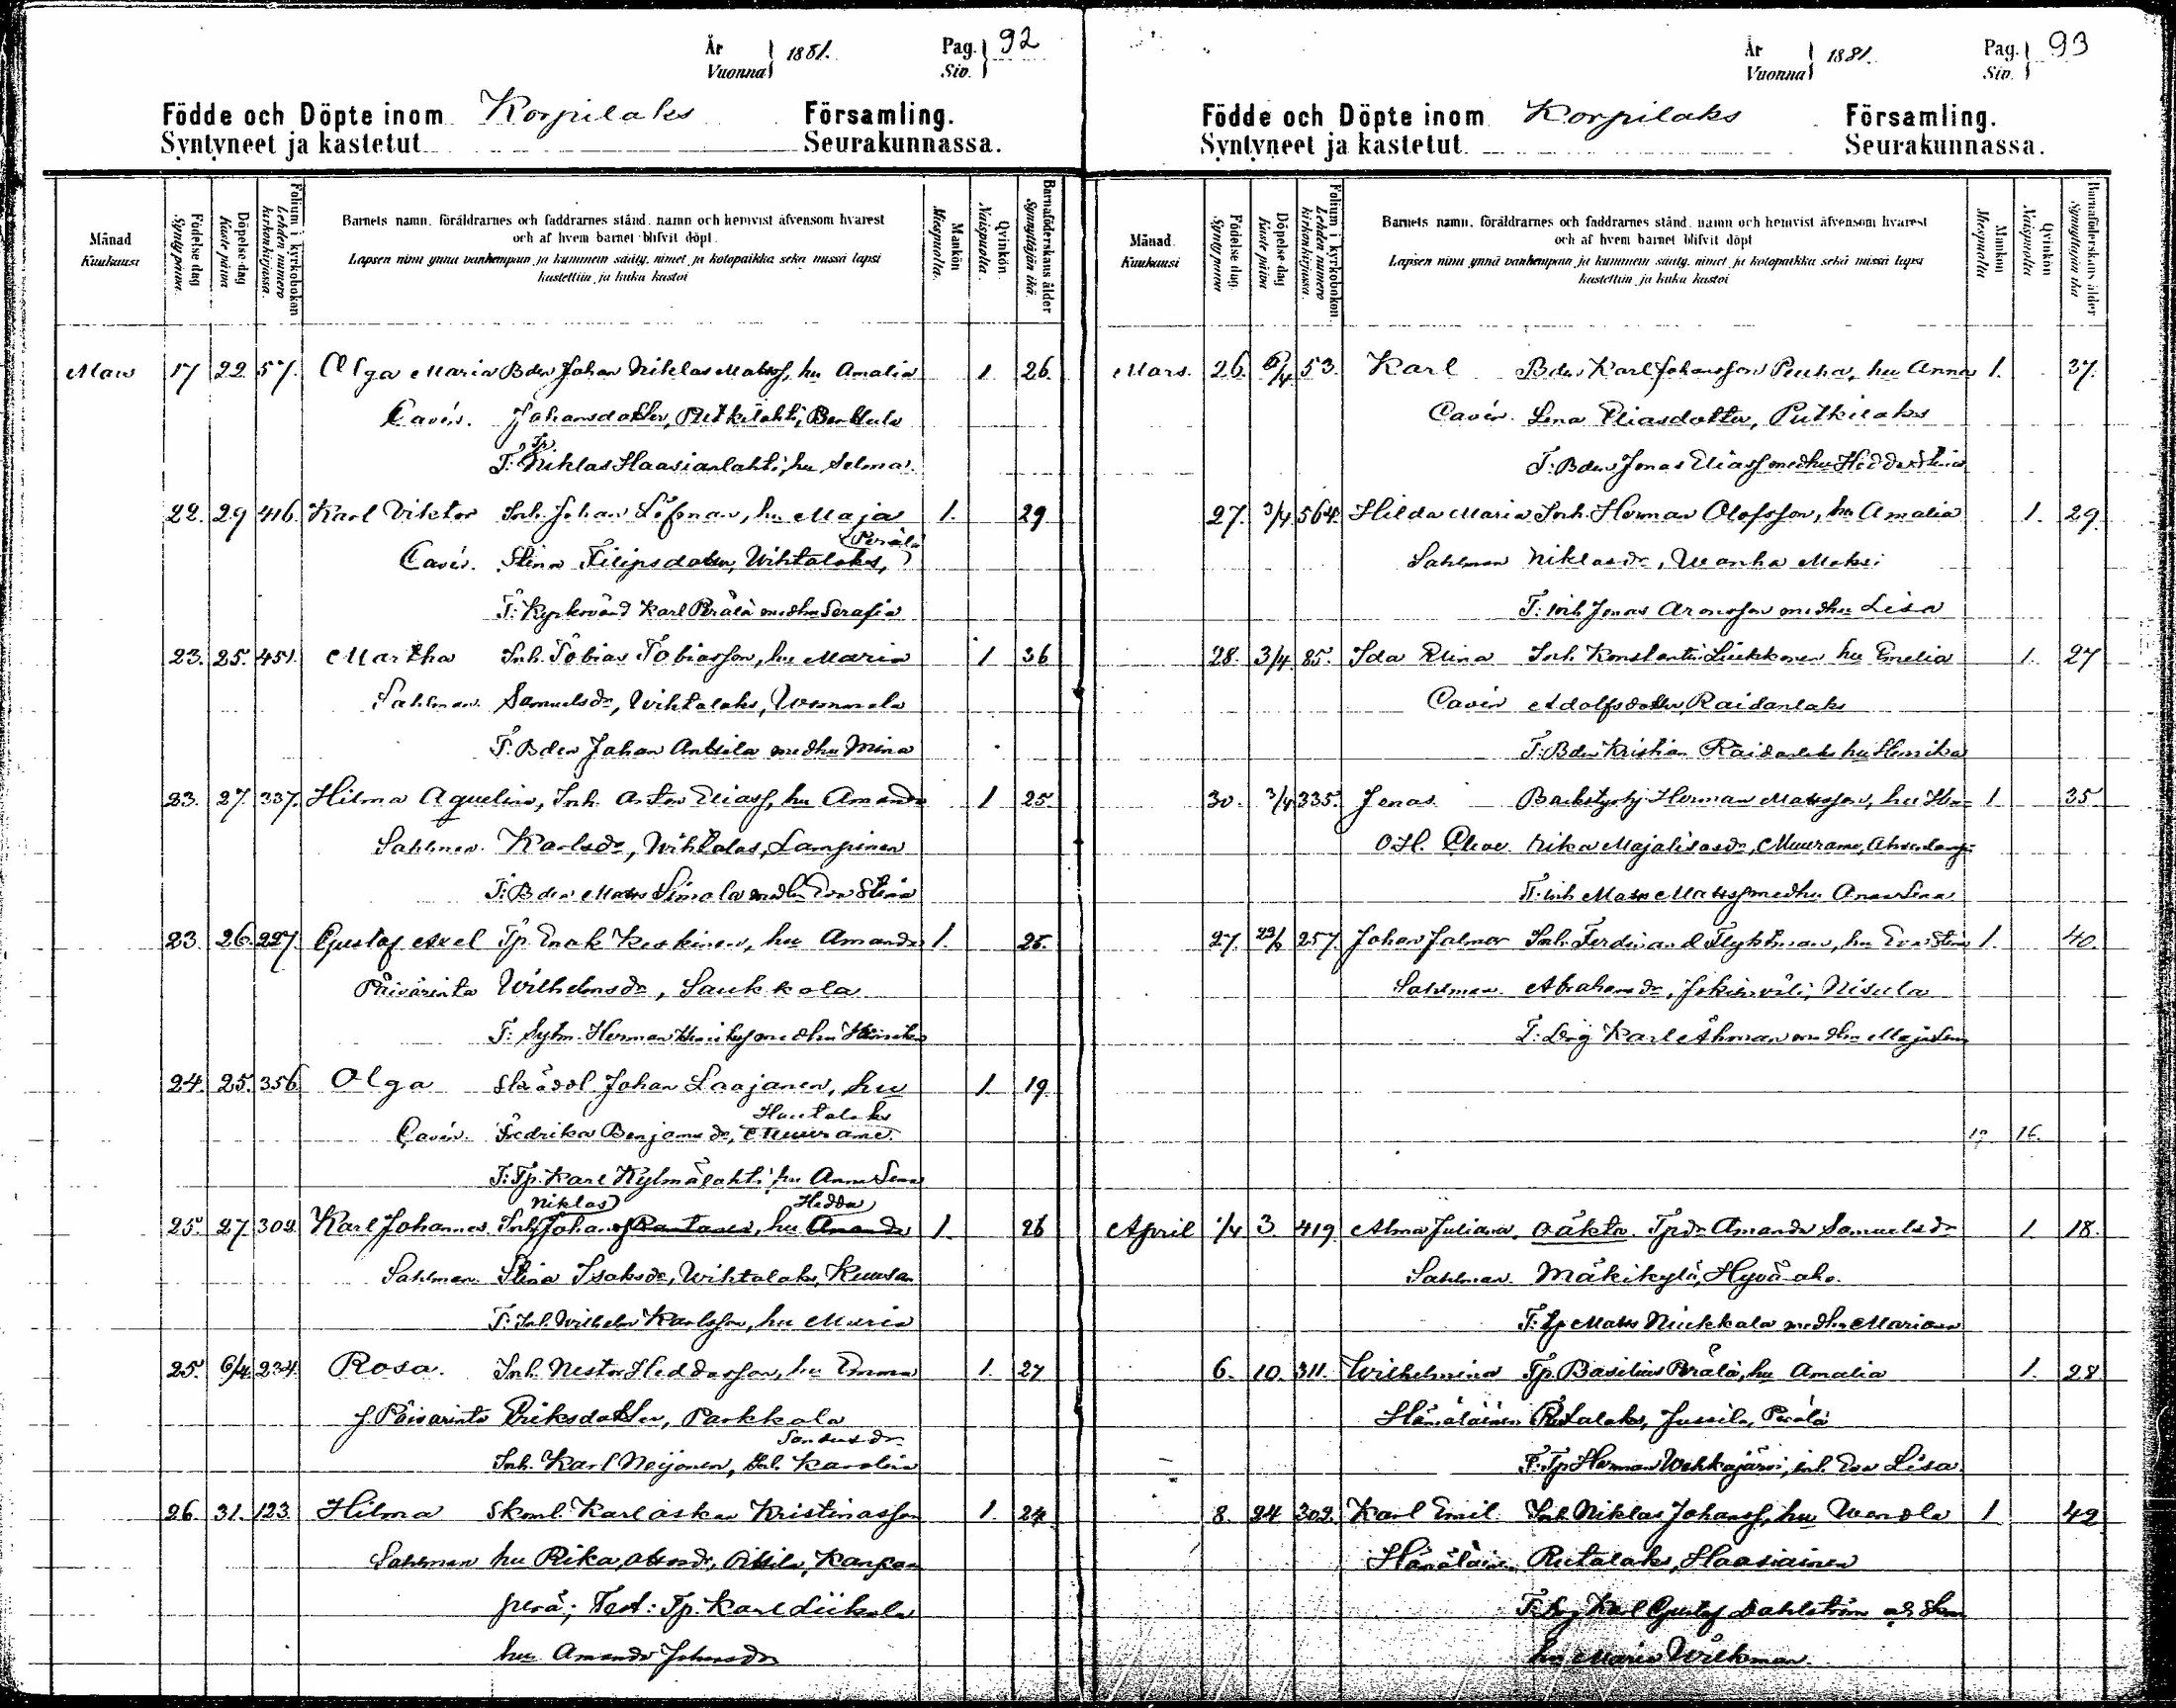 År
Vuonna 1881. Pag. Siv. 92
Födde och Döpte inom Korpilaks Församling.
Syntyneet ja kastetut Seurakunnassa.
Månad
Kuukausi
Födelse dag
Syntypäivä.
Döpelse-dag
Kaste päivä
Folium i kyrkoboken
Lehden numero kirkonkirjassa.
Barnets namn, föräldrarnes och faddrarnes stånd, namn och hemvist äfvensom hvarest
och af hvem barnet blifvit döpt.
Lapsen nimi ynnä vanhempain ja kummein sääty, nimet ja kotopaikka sekä missä lapsi
kastettiin ja kuka kastoi
Mankön
Miespuolia.
Qvinkön
Naispuolia.
Barnaföderskans ålder
Synnyttäjän ikä.
Mars 17 22 57. Olga Maria Bdn Johan Niklas Matss, hu Amalia 1. 26.
Cavén. Johansdotter, Putkilahti,
Tp
F: Niklas Haasianlahti, hu Selma.
22. 29 416. Karl Viktor Inh. Johan Löfman, hu Maja 1. 29
Perälä
Cavén. Stina Filipsdotter, Wihtalaks,
F: Kyrkovärd Karl Perälä med hu Serafia
23. 25. 451. Martha Inh. Tobias Tobiasson, hu Maria 1 36
Sahlman. Samuelsdr, Wihtalaks,
F. Bden Johan Anttila med hu Mina
23. 27. 337. Hilma Aquelina, Inh. Anton Eliass, hu Amanda 1 25.
Sahlman. Karlsdr, Wihtalas, Lampinen
F: Bden Matts Simola med hu Eva Stina
23. 26. 227. Gustaf Axel Tp. Enok Keskinen, hu Amanda 1. 25.
Päivärinta Wilhelmsdr, Saukkola
F: Sytn. Herman med hu
24. 25. 356 Olga Skrädd. Johan Laajanen, hu 1. 19
Hautalaks
Cavén. Fredrika Benjamsdr, Muurame.
F: Tp. Karl Kylmälahti, hu Anna Lena
Niklas Hedda
25. 27. 302. Karl Johannes. Inh. Johans Rantanen, hu Amanda 1. 26
Sahlman. Stina Isaksdr, Wihtalaks, Kuusan
F: Inh. Wilhelm Karlsson, hu Maria
25. 6/4 234. Rosa. Inh. Nestor Heddasson, hu Emma 1. 27
J. Päivärinta Eriksdotter, Parkkola
Inh. Karl Neijonen, Inh. Karolin
26. 31. 123. Hilma Skoml. Karl Oskar Kristinasson 1. 24.
Sahlman hu Rika Kangas
perä; Test: Tp. Karl
hu Amanda Johansdr
År
Vuonna 1881. Pag. Siv. 93
Födde och Döpte inom Korpilaks Församling.
Syntyneet ja kastetut Seurakunnassa.
Månad.
Kuukausi
Födelse dag.
Syntypäivä
Döpelse dag
Kaste päivä
Folium i kyrkoboken.
Lehden numero kirkonkirjassa.
Barnets namn, föräldrarnes och faddrarnes stånd, namn och hemvist äfvensom hvarest
och af hvem barnet blifvit döpt
Lapsen nimi ynnä vanhempain ja kummein sääty, nimet ja kotopaikka sekä missä lapsi
kastettiin ja kuka kastoi
Mankön
Miespuolia
Qvinkön
Naispuolia
Barnaföderskans ålder
Synnyttäjän ikä
Mars. 26. 6/4 53. Karl Bdn Karl Johansson Peuha, hu Anna 1. 37.
Cavén. Lena Eliasdotter, Putkilaks
F: Bden Jonas Eliass med hu Hedda Stina
27. 3/4 564. Hilda Maria Inh. Herman Olofsson, hu Amalia 1. 29.
Sahlman Niklasdr, Wanha Maksi
F: inh Jonas Aronsson med hu Lisa
28. 3/4 85. Ida Elina Inh. Konstantin Liukkonen hu Emelia 1. 27
Cavén Adolfsdotter, Raidanlaks
F: Bdn Kristian Raidanlaks hu Henrika
30. 3/4 335. Jonas Backstuhj Herman Mattsson, hu Hen- 1 35
O.H. Cleve. rika Majalisasdr, Muurame,
F: inh Matts Matss med hu Anna Lena
27. 257. Johan Jalmar Inh. Ferdinand Flyktman, hu Eva Stina 1. 40.
Sahlman. Abrahamsdr, Jokisivili, Nisula
F: Drg Karl Åhman med hu Maja Lena
17 16.
April 1/4 3. 419 Alma Juliana. Oäkta. Tpdr Amanda Samuelsdr 1. 18.
Sahlman. Mäkikylä, Hyväaho.
F: Tp Matts Niukkala med hu Mariana
6. 10. 311. Wilhelmina Tp. Basilius Perälä, hu Amalia 1. 28
Hämäläinen Rutalaks, Jussila, Perälä
F: Tp Herman Wehkajärvi, inh. Eva Lisa.
8. 24 302. Karl Emil Inh. Niklas Johanss, hu Wendla 1 42
Hämäläinen Rutalaks, Haasiainen
F: Drg Karl Gustaf Dahlström
hu Maria Wilkman.